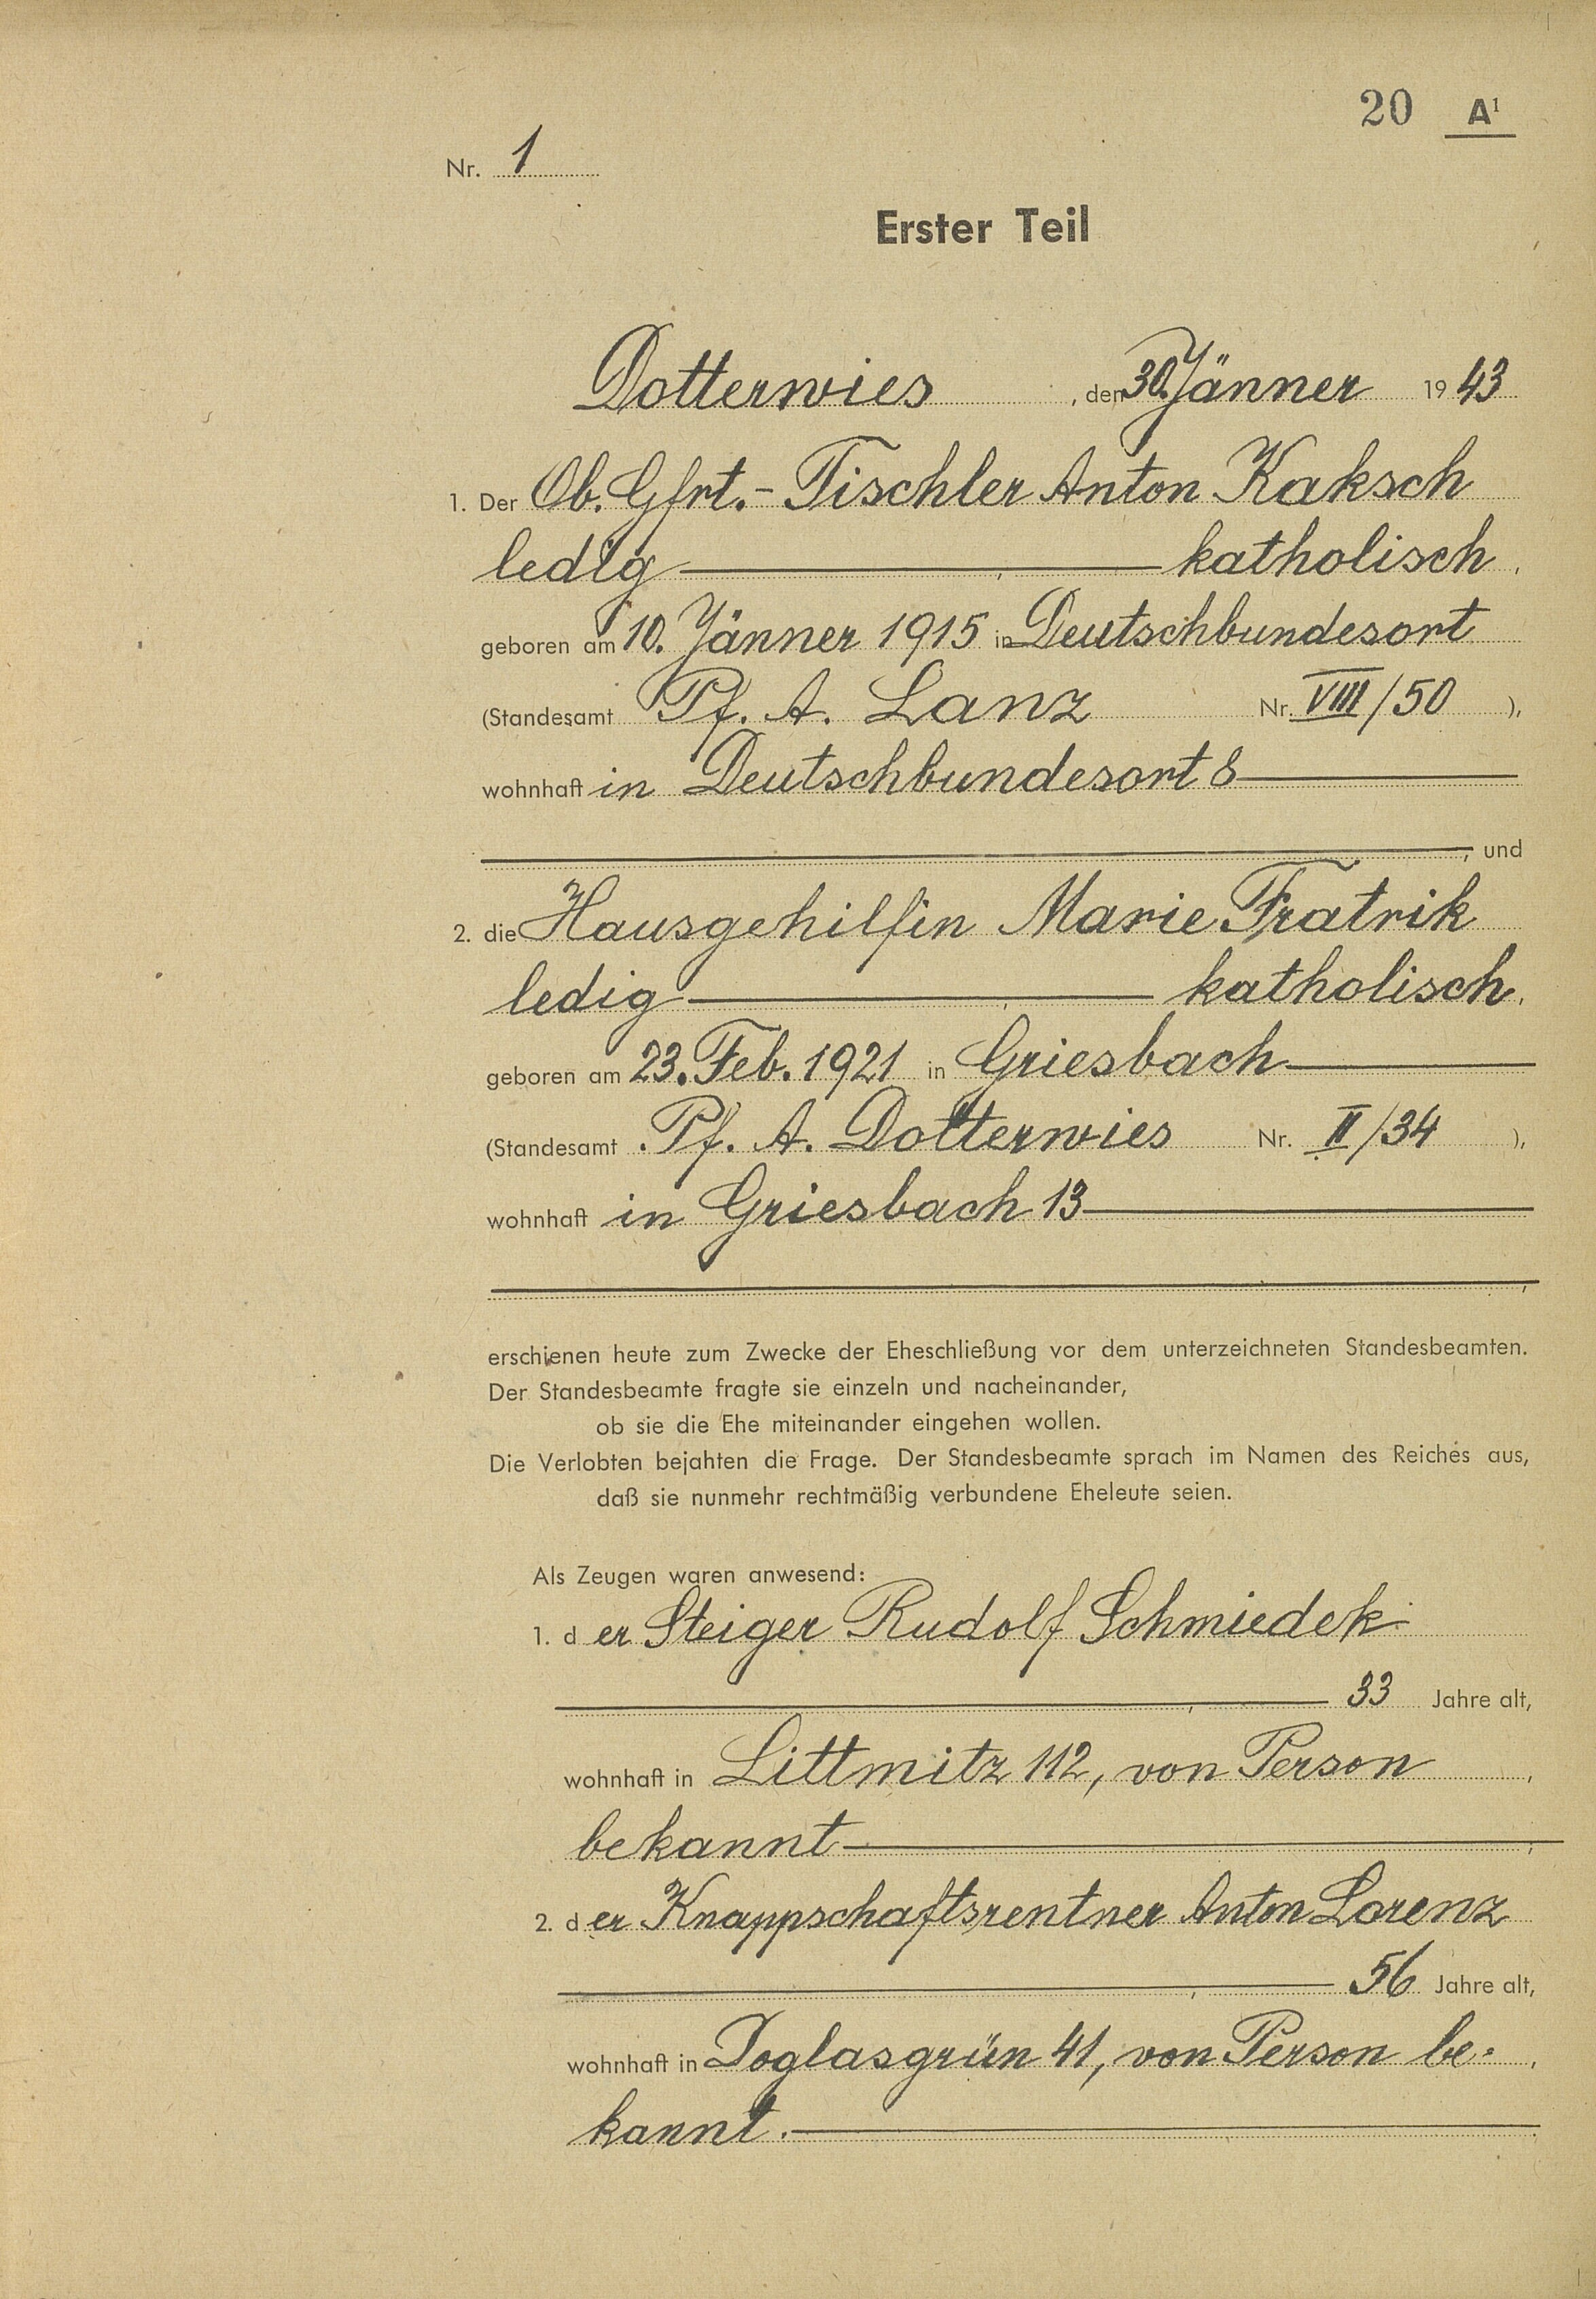 20 A¹
Nr. 1
Erster Teil
Dotterwies, den 30. Jänner 1943
1. Der Ob. Gfrt.- Tischler Anton Kaksch
ledig , katholisch,
geboren am 10. Jänner 1915 in Deutschbundesort
(Standesamt Pf. A. Lanz Nr. VIII/50 ),
wohnhaft in Deutschbundesort 8
, und
2. die Hausgehilfin Marie Fratrik
ledig , katholisch,
geboren am 23. Feb. 1921 in Griesbach
(Standesamt Pf. A. Dotterwies Nr. II/34 ),
wohnhaft in Griesbach 13
,
erschienen heute zum Zwecke der Eheschließung vor dem unterzeichneten Standesbeamten.
Der Standesbeamte fragte sie einzeln und nacheinander,
ob sie die Ehe miteinander eingehen wollen.
Die Verlobten bejahten die Frage. Der Standesbeamte sprach im Namen des Reiches aus,
daß sie nunmehr rechtmäßig verbundene Eheleute seien.
Als Zeugen waren anwesend:
1. der Steiger Rudolf Schmiedek
, 33 Jahre alt,
wohnhaft in Littmitz 112, von Person ,
bekannt ;
2. der Knappschaftsrentner Anton Lorenz
, 56 Jahre alt,
wohnhaft in Doglasgrün 41, von Person be- ,
kannt.